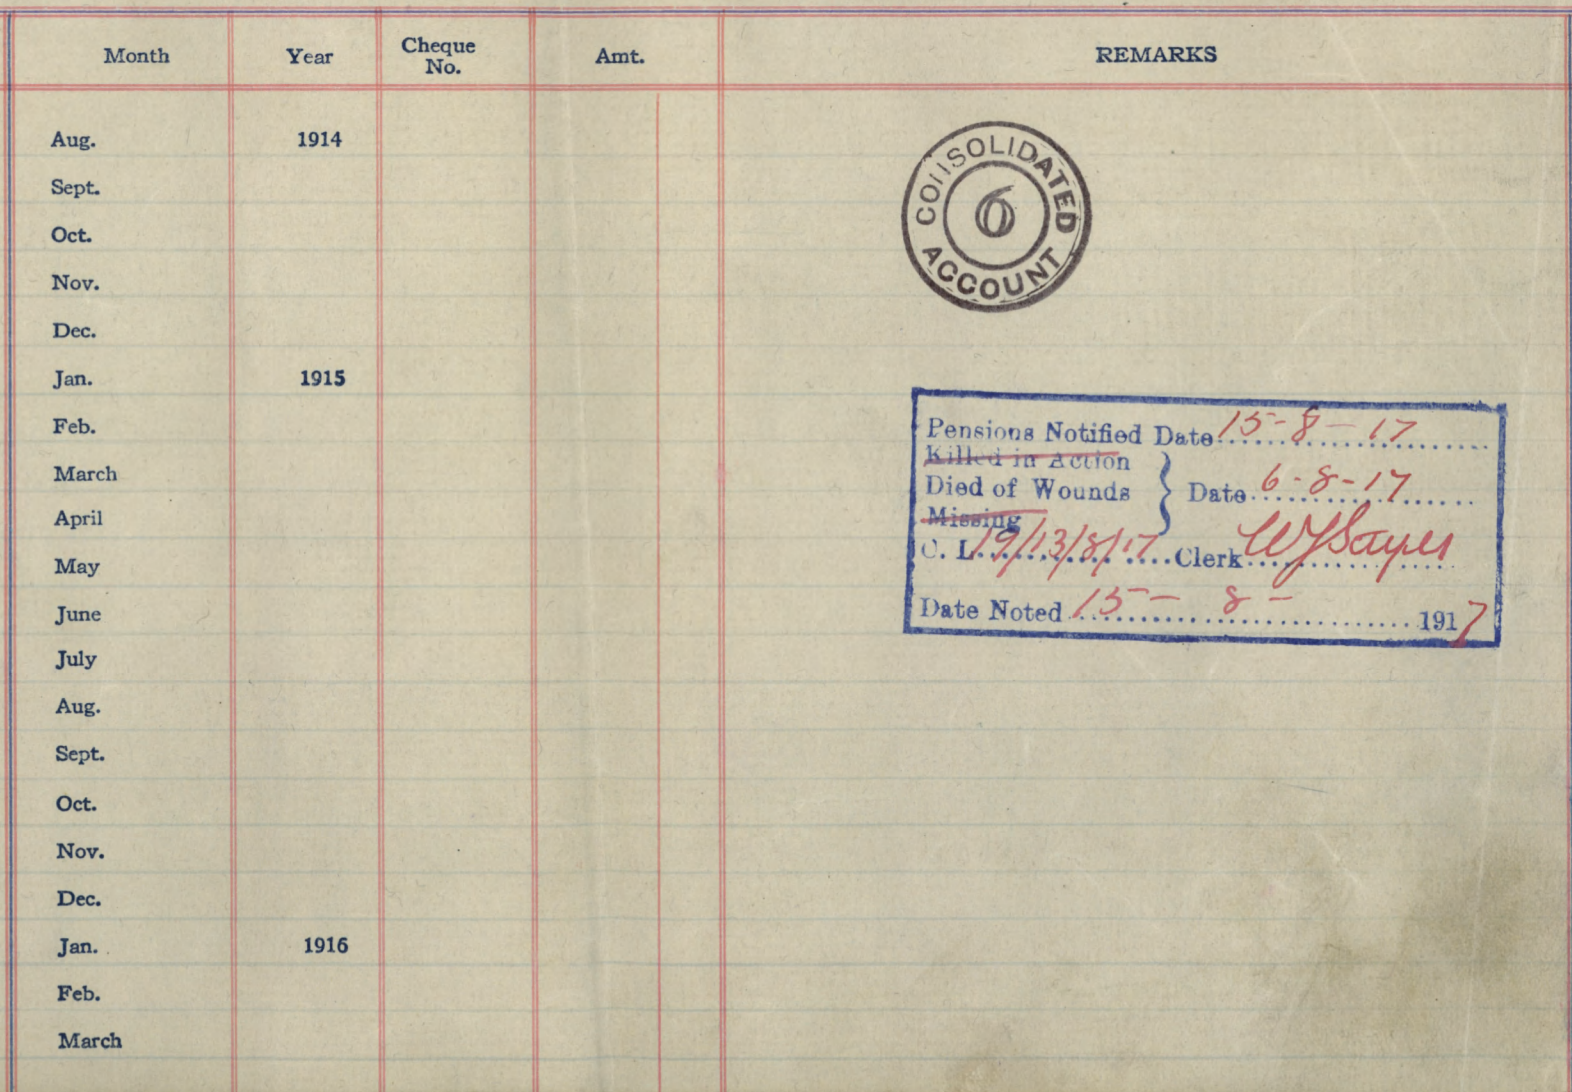 Month Year Cheque No. Amt. REMARKS
Aug. 1914
Sept.
Oct.
Nov.
Dec.
Jan. 1915
Feb.
March
April
May
June
July
Aug.
Sept.
Oct.
Nov.
Dec.
Jan. 1916
Feb.
March
CONSOLIDATED
6
ACCOUNT
Pensions Notified Date 15-8-17
Killed in Action
Died of Wounds } Date 6-8-17
Missing
C. L. 19/13/8/17 Clerk
Date Noted 15-8-1917